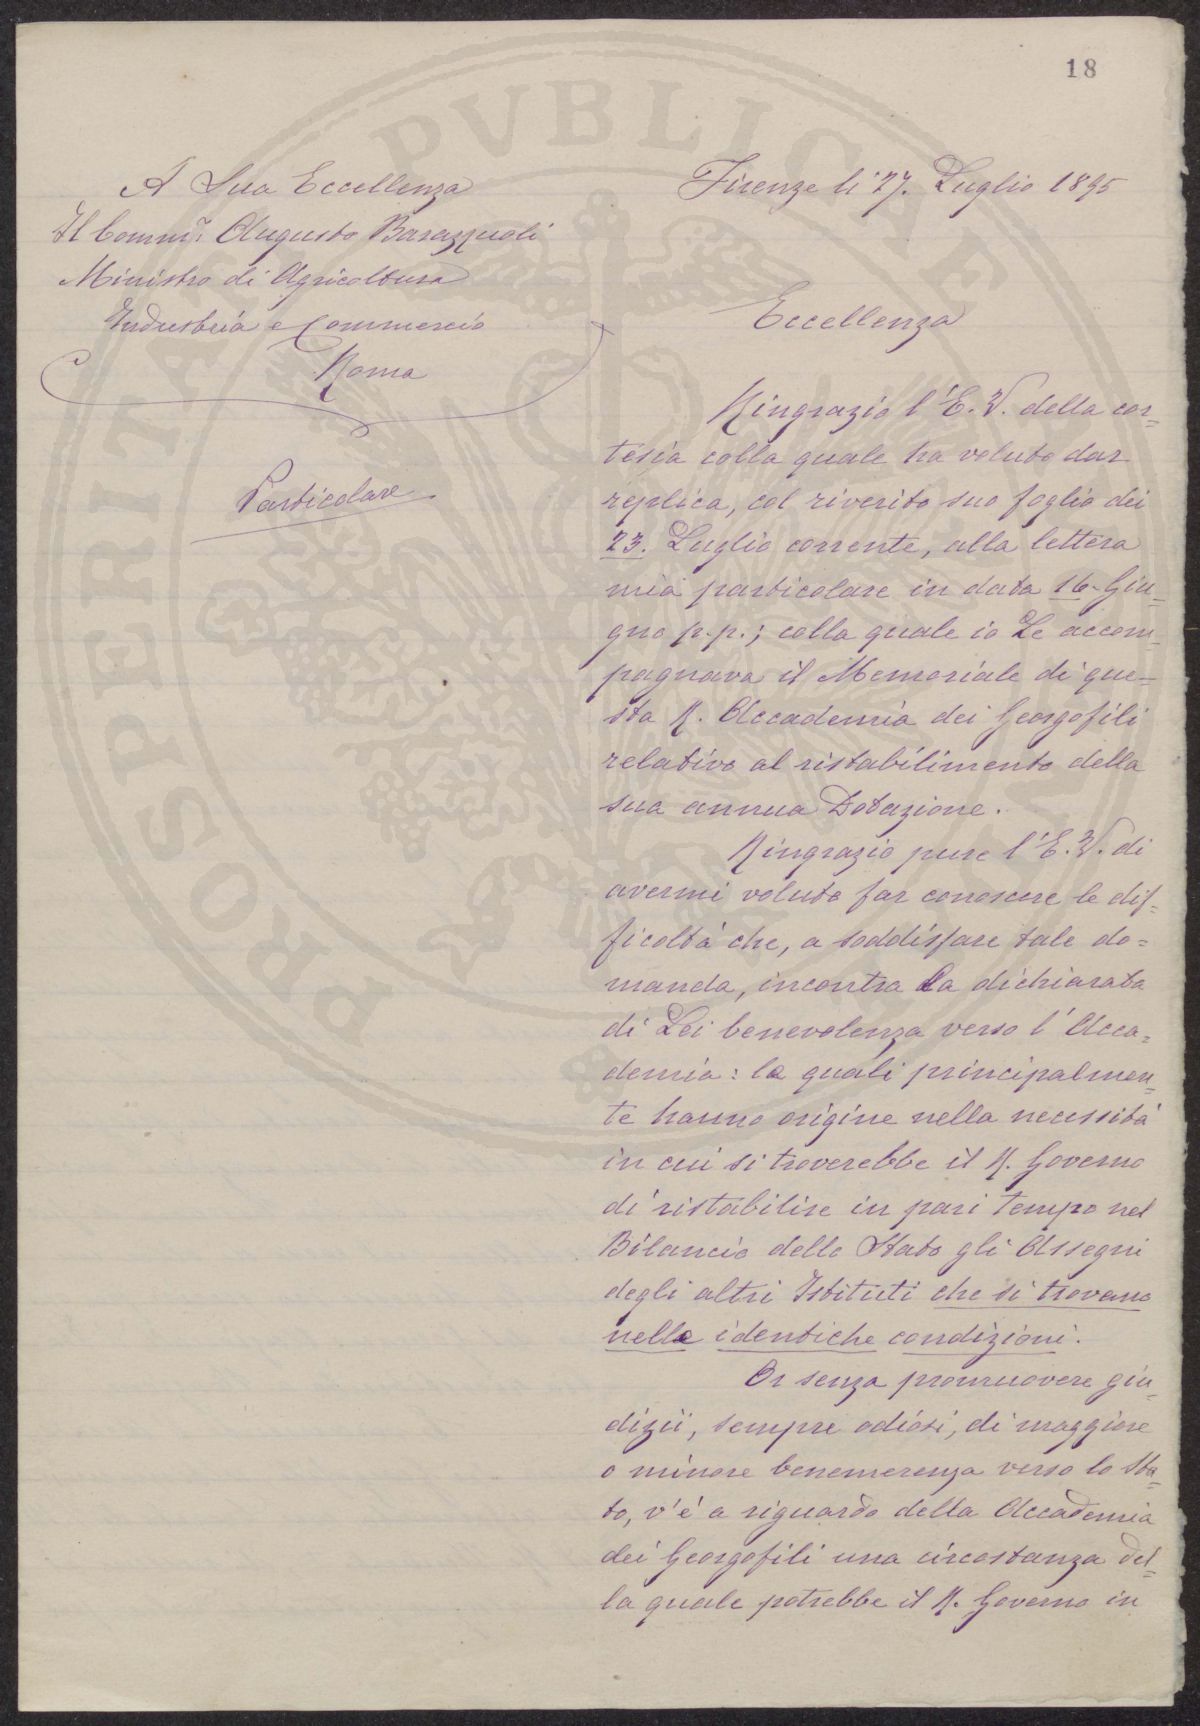 18
A Sua Eccellenza
Il Comm.r Augusto Barazzuoli
Ministro di Agricoltura
Industria e Commercio
Roma
Particolare
Firenze li 27. Luglio 1895
Eccellenza
Ringrazio l'E. V. della cor=
tesia colla quale ha voluto dar
replica, col riverito suo foglio dei
23. Luglio corrente, alla lettera
mia particolare in data 16. Giu=
gno p.p.; colla quale io Le accom=
pagnava il Memoriale di que=
sta R. Accademia dei Georgofili
relativo al ristabilimento della
sua annua Dotazione.
Ringrazio pure l'E. V. di
avermi voluto far conoscere le dif=
ficoltà che, a soddisfare tale do=
manda, incontra la dichiarata
di Lei benevolenza verso l'Acca=
demia: le quali principalmen=
te hanno origine nella necessità
in cui si troverebbe il R. Governo
di ristabilire in pari tempo nel
Bilancio dello Stato gli Assegni
degli altri Istituti che si trovano
nelle identiche condizioni.
Or senza promuovere giu=
dizii, sempre odiosi, di maggiore
o minore benemerenza verso lo Sta=
to, v'è a riguardo della Accademia
dei Georgofili una circostanza del=
la quale potrebbe il R. Governo in
PROSPERITATI PVBLICAE